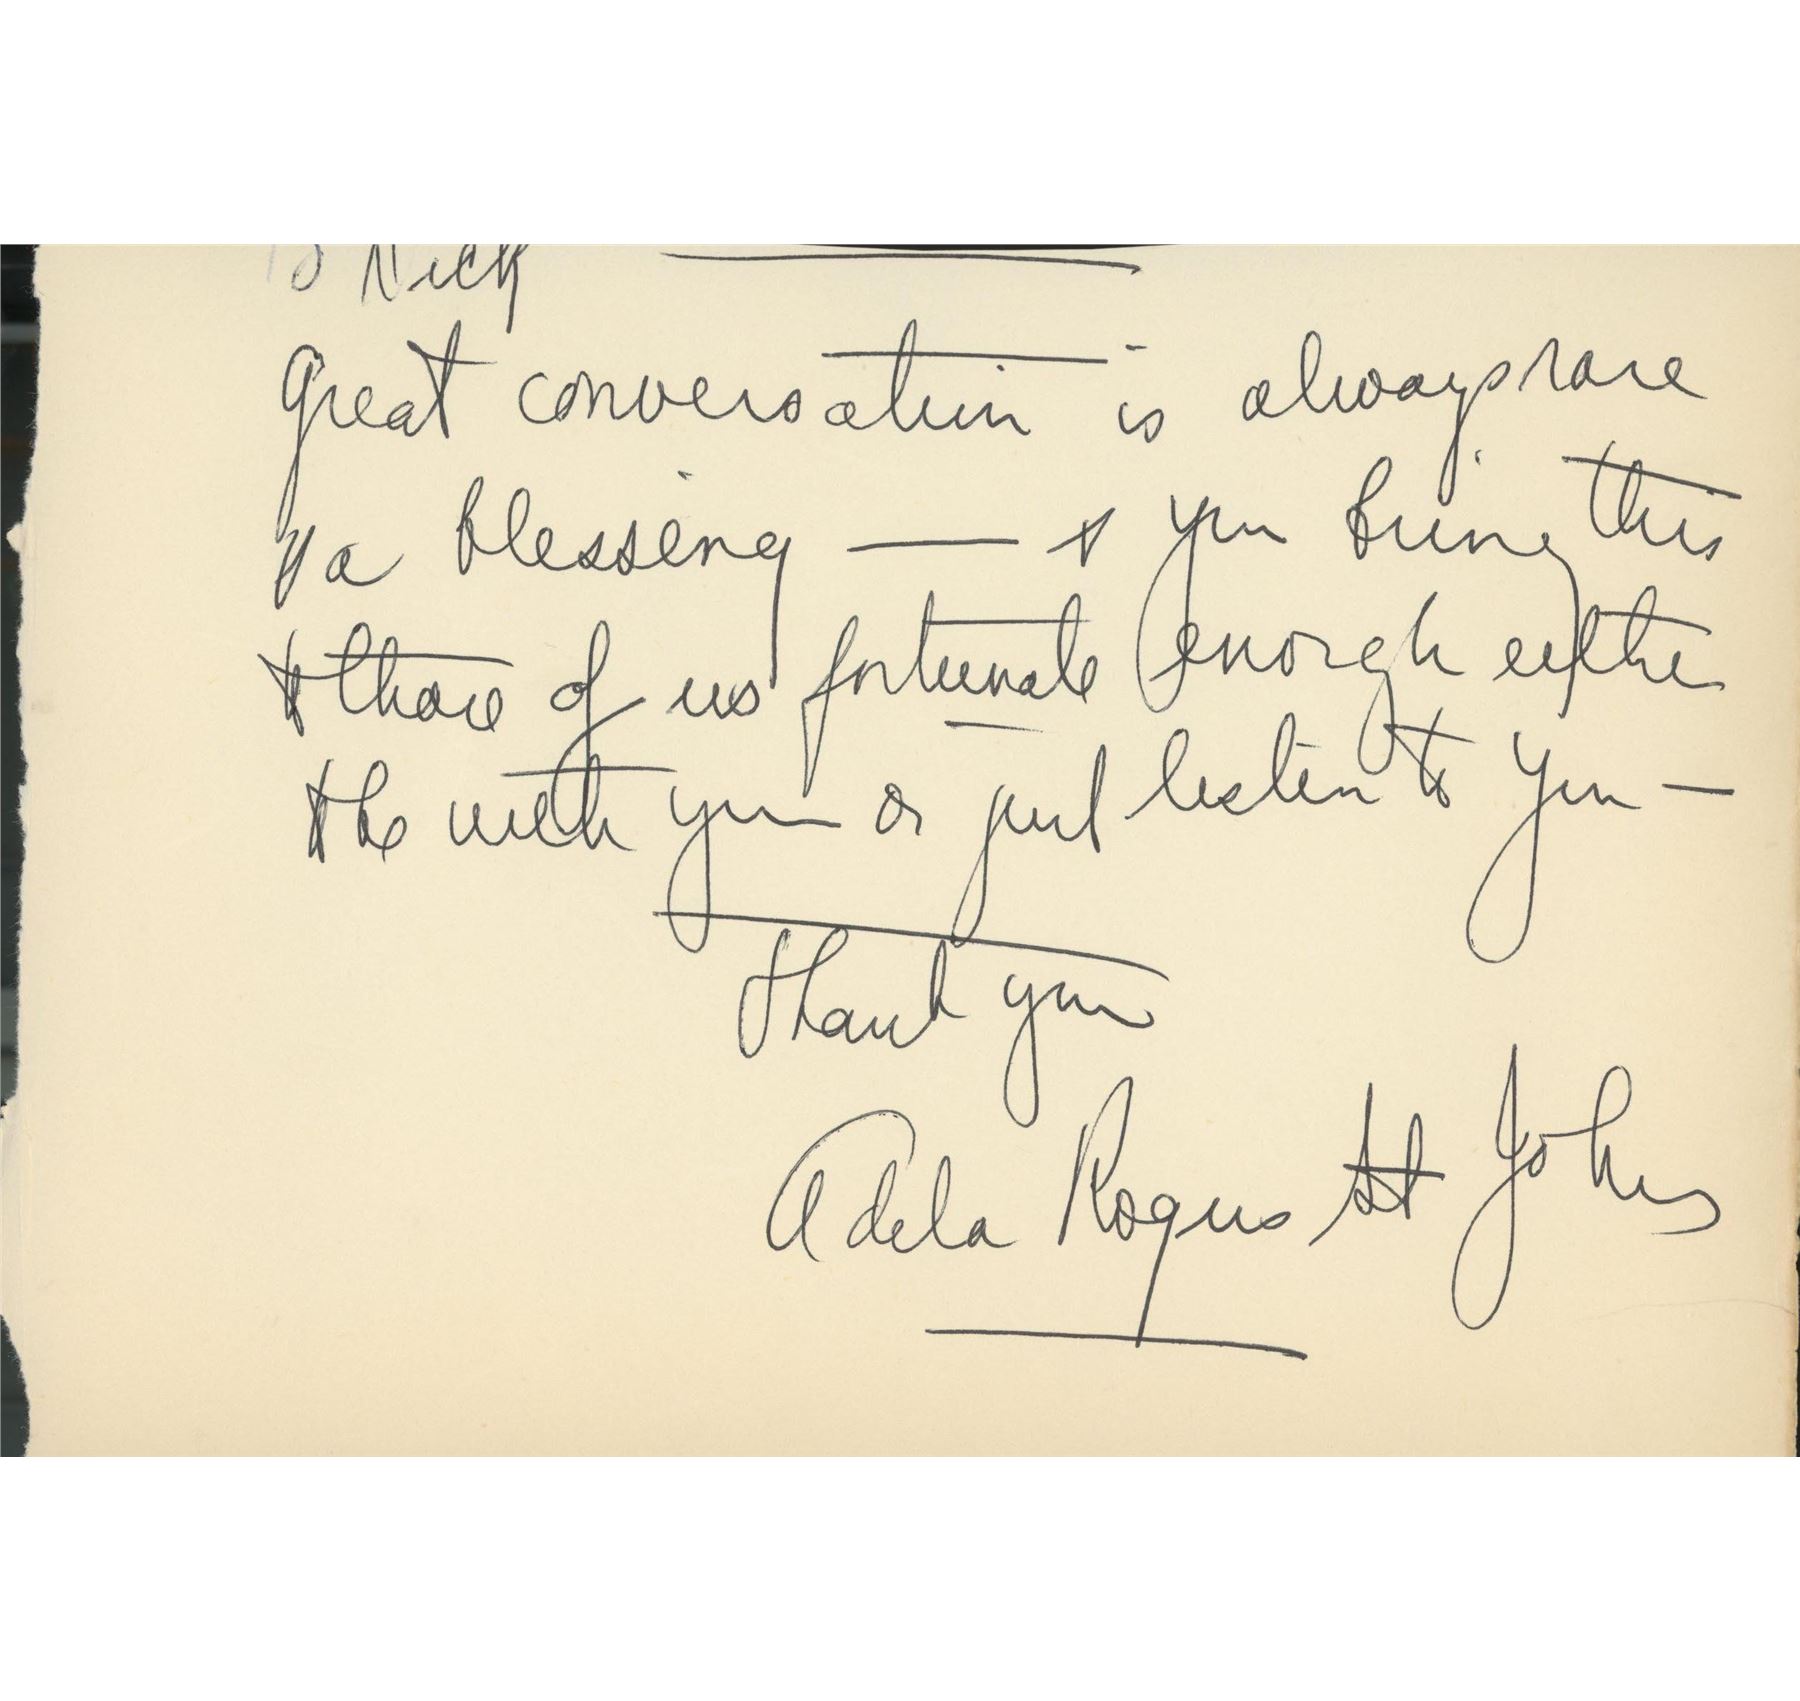 To Nick
Great conversation is always rare
& a blessing — & you bring this
to those of us fortunate enough either
to be with you or just listen to you —
Thank you
Adela Rogers St Johns